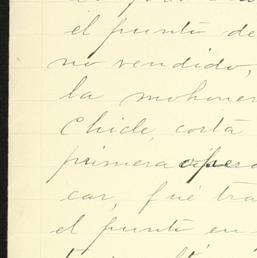 el punto de
no vendido,
la mohoner
Chicle, corta
primera
car, fué tra
el punto en